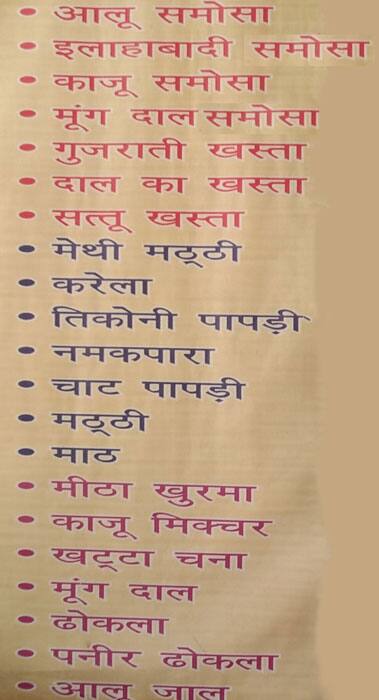 • आलू समोसा
• इलाहाबादी समोसा
• काजू समोसा
• मूंग दाल समोसा
• गुजराती खस्ता
• दाल का खस्ता
• सत्तू खस्ता
• मेथी मठ्ठी
• करेला
• तिकोनी पापड़ी
• नमकपारा
• चाट पापड़ी
• मठ्ठी
• माठ
• मीठा खुरमा
• काजू मिक्चर
• खट्टा चना
• मूंग दाल
• ढोकला
• पनीर ढोकला
• आलू जाल